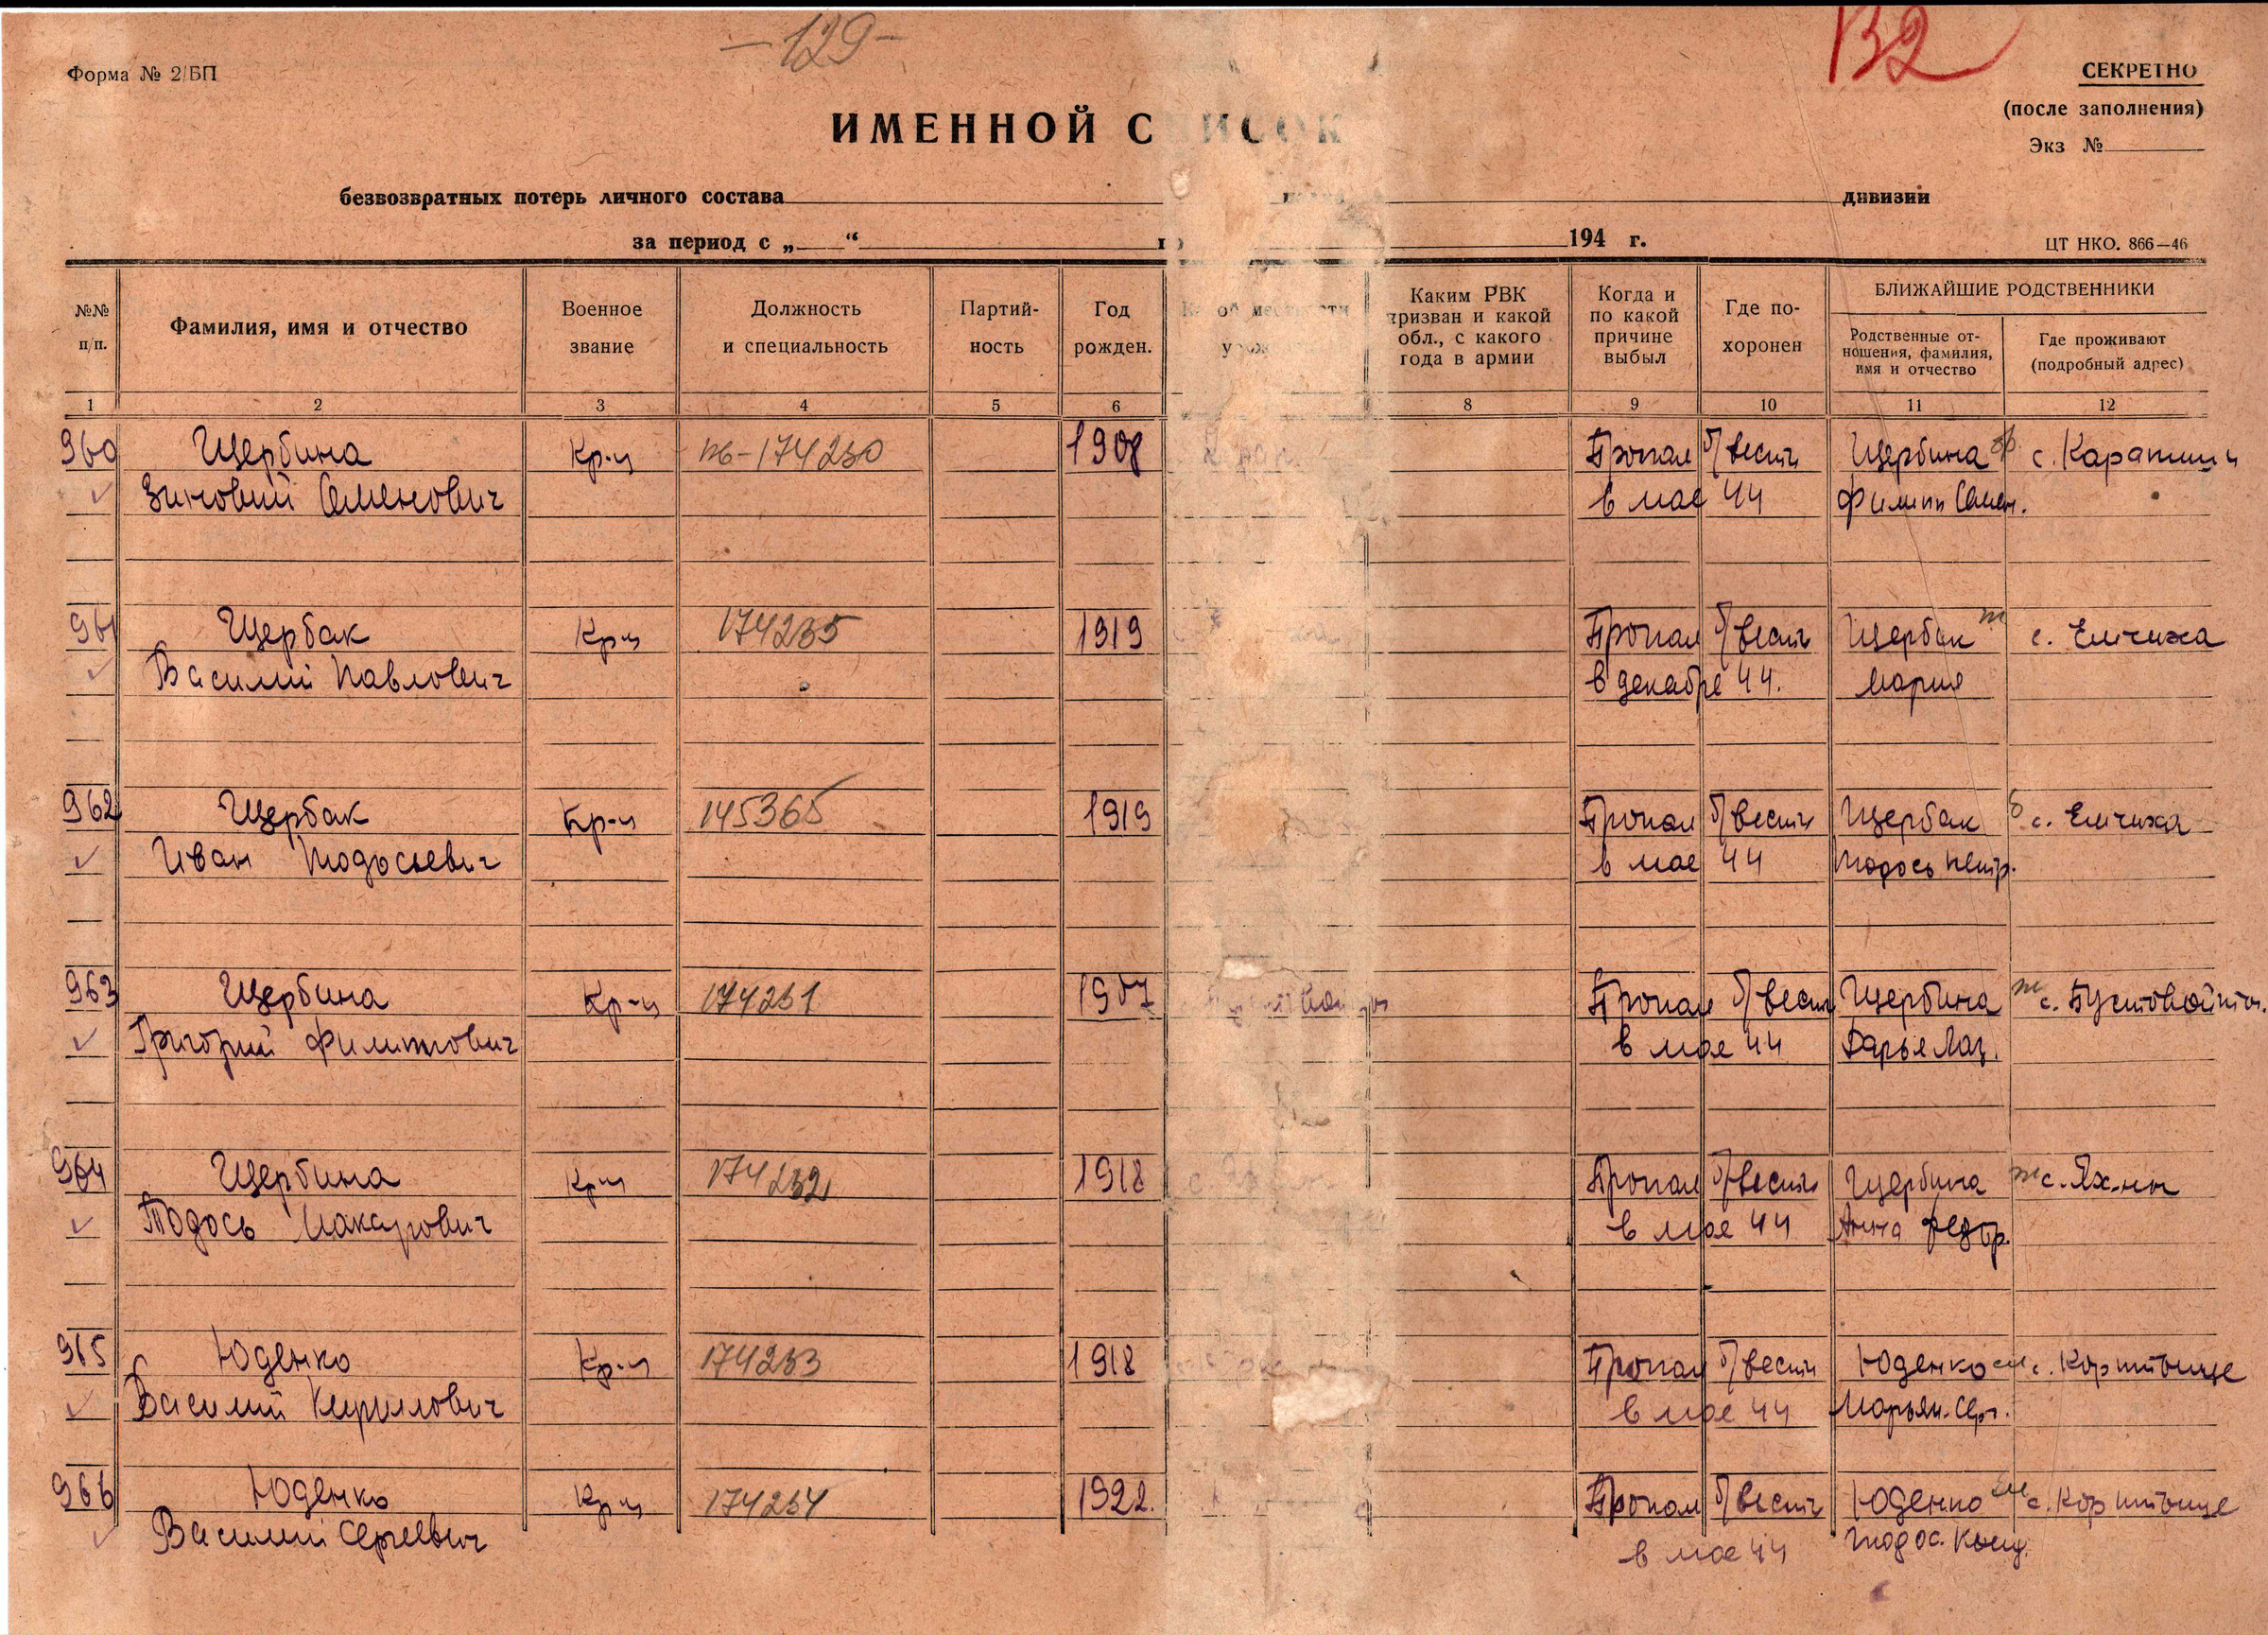 -129-
132
Форма № 2/БП
СЕКРЕТНО
(после заполнения)
Экз №
ИМЕННОЙ СПИСОК
безвозвратных потерь личного состава дивизии
за период с „ “ 194 г.
ЦТ НКО. 866—46
№№ п/п.
Фамилия, имя и отчество
Военное звание
Должность и специальность
Партий-
ность
Год рожден.
Каким РВК
призван и какой
обл., с какого
года в армии
Когда и
по какой
причине
выбыл
Где по-
хоронен
БЛИЖАЙШИЕ РОДСТВЕННИКИ
Родственные от-
ношения, фамилия,
имя и отчество
Где проживают
(подробный адрес)
1 2 3 4 5 6 8 9 10 11 12
960 Щербина Кр-ц 174230 1908 Пропал б/вести Щербина бр с.
Зиновий Семенович в мае 44 Филип Семен.
961 Щербак Кр-ц 174235 1919 Пропал б/вести Щербак с. Емчиха
Василий Павлович в декабре 44. Мария
962 Щербак Кр-ц 145365 1919 Пропал б/вести Щербак с. Емчиха
Иван Тодосьевич в мае 44 Тодось Петр.
963 Щербина Кр-ц 174231 1907 Пропал б/вести Щербина ж с.
Григорий Филиппович в мае 44 Дарья Лаз.
964 Щербина Кр-ц 174232 1918 Пропал б/вести Щербина ж с. Яхны
Тодось Макарович в мае 44 Анна Федор.
965 Юденко Кр-ц 174233 1918 Пропал б/вести Юденко с. Коритыще
Василий Кирилович в мае 44 Марьян. Серг.
966 Юденко Кр-ц 174234 1922. Пропал б/вести Юденко с. Коритыще
Василий Сергеевич в мае 44 Тодос.